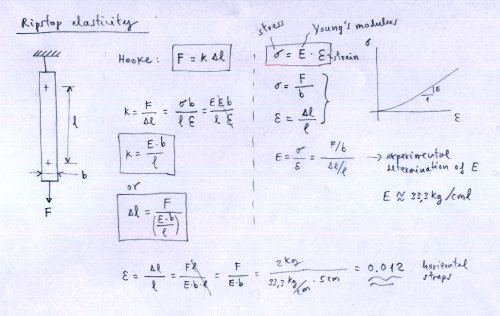 Ripstop elasticity
l
b
F
Hooke: F = k Δl
k = F/Δl = σb/(l ε) = E ε b/(l ε)
k = E·b/l
or
Δl = F/(E·b/l)
stress
Young's modulus
σ = E · ε
strain
σ = F/b
ε = Δl/l
E = σ/ε = (F/b)/(Δl/l) → experimental
determination of E
E ≈ 33,3 kg/cm
σ
E
1
ε
ε = Δl/l = Fl/(E·b·l) = F/(E·b) = 2kg/(33,3 kg/cm · 5cm) = 0.012
horizontal
straps